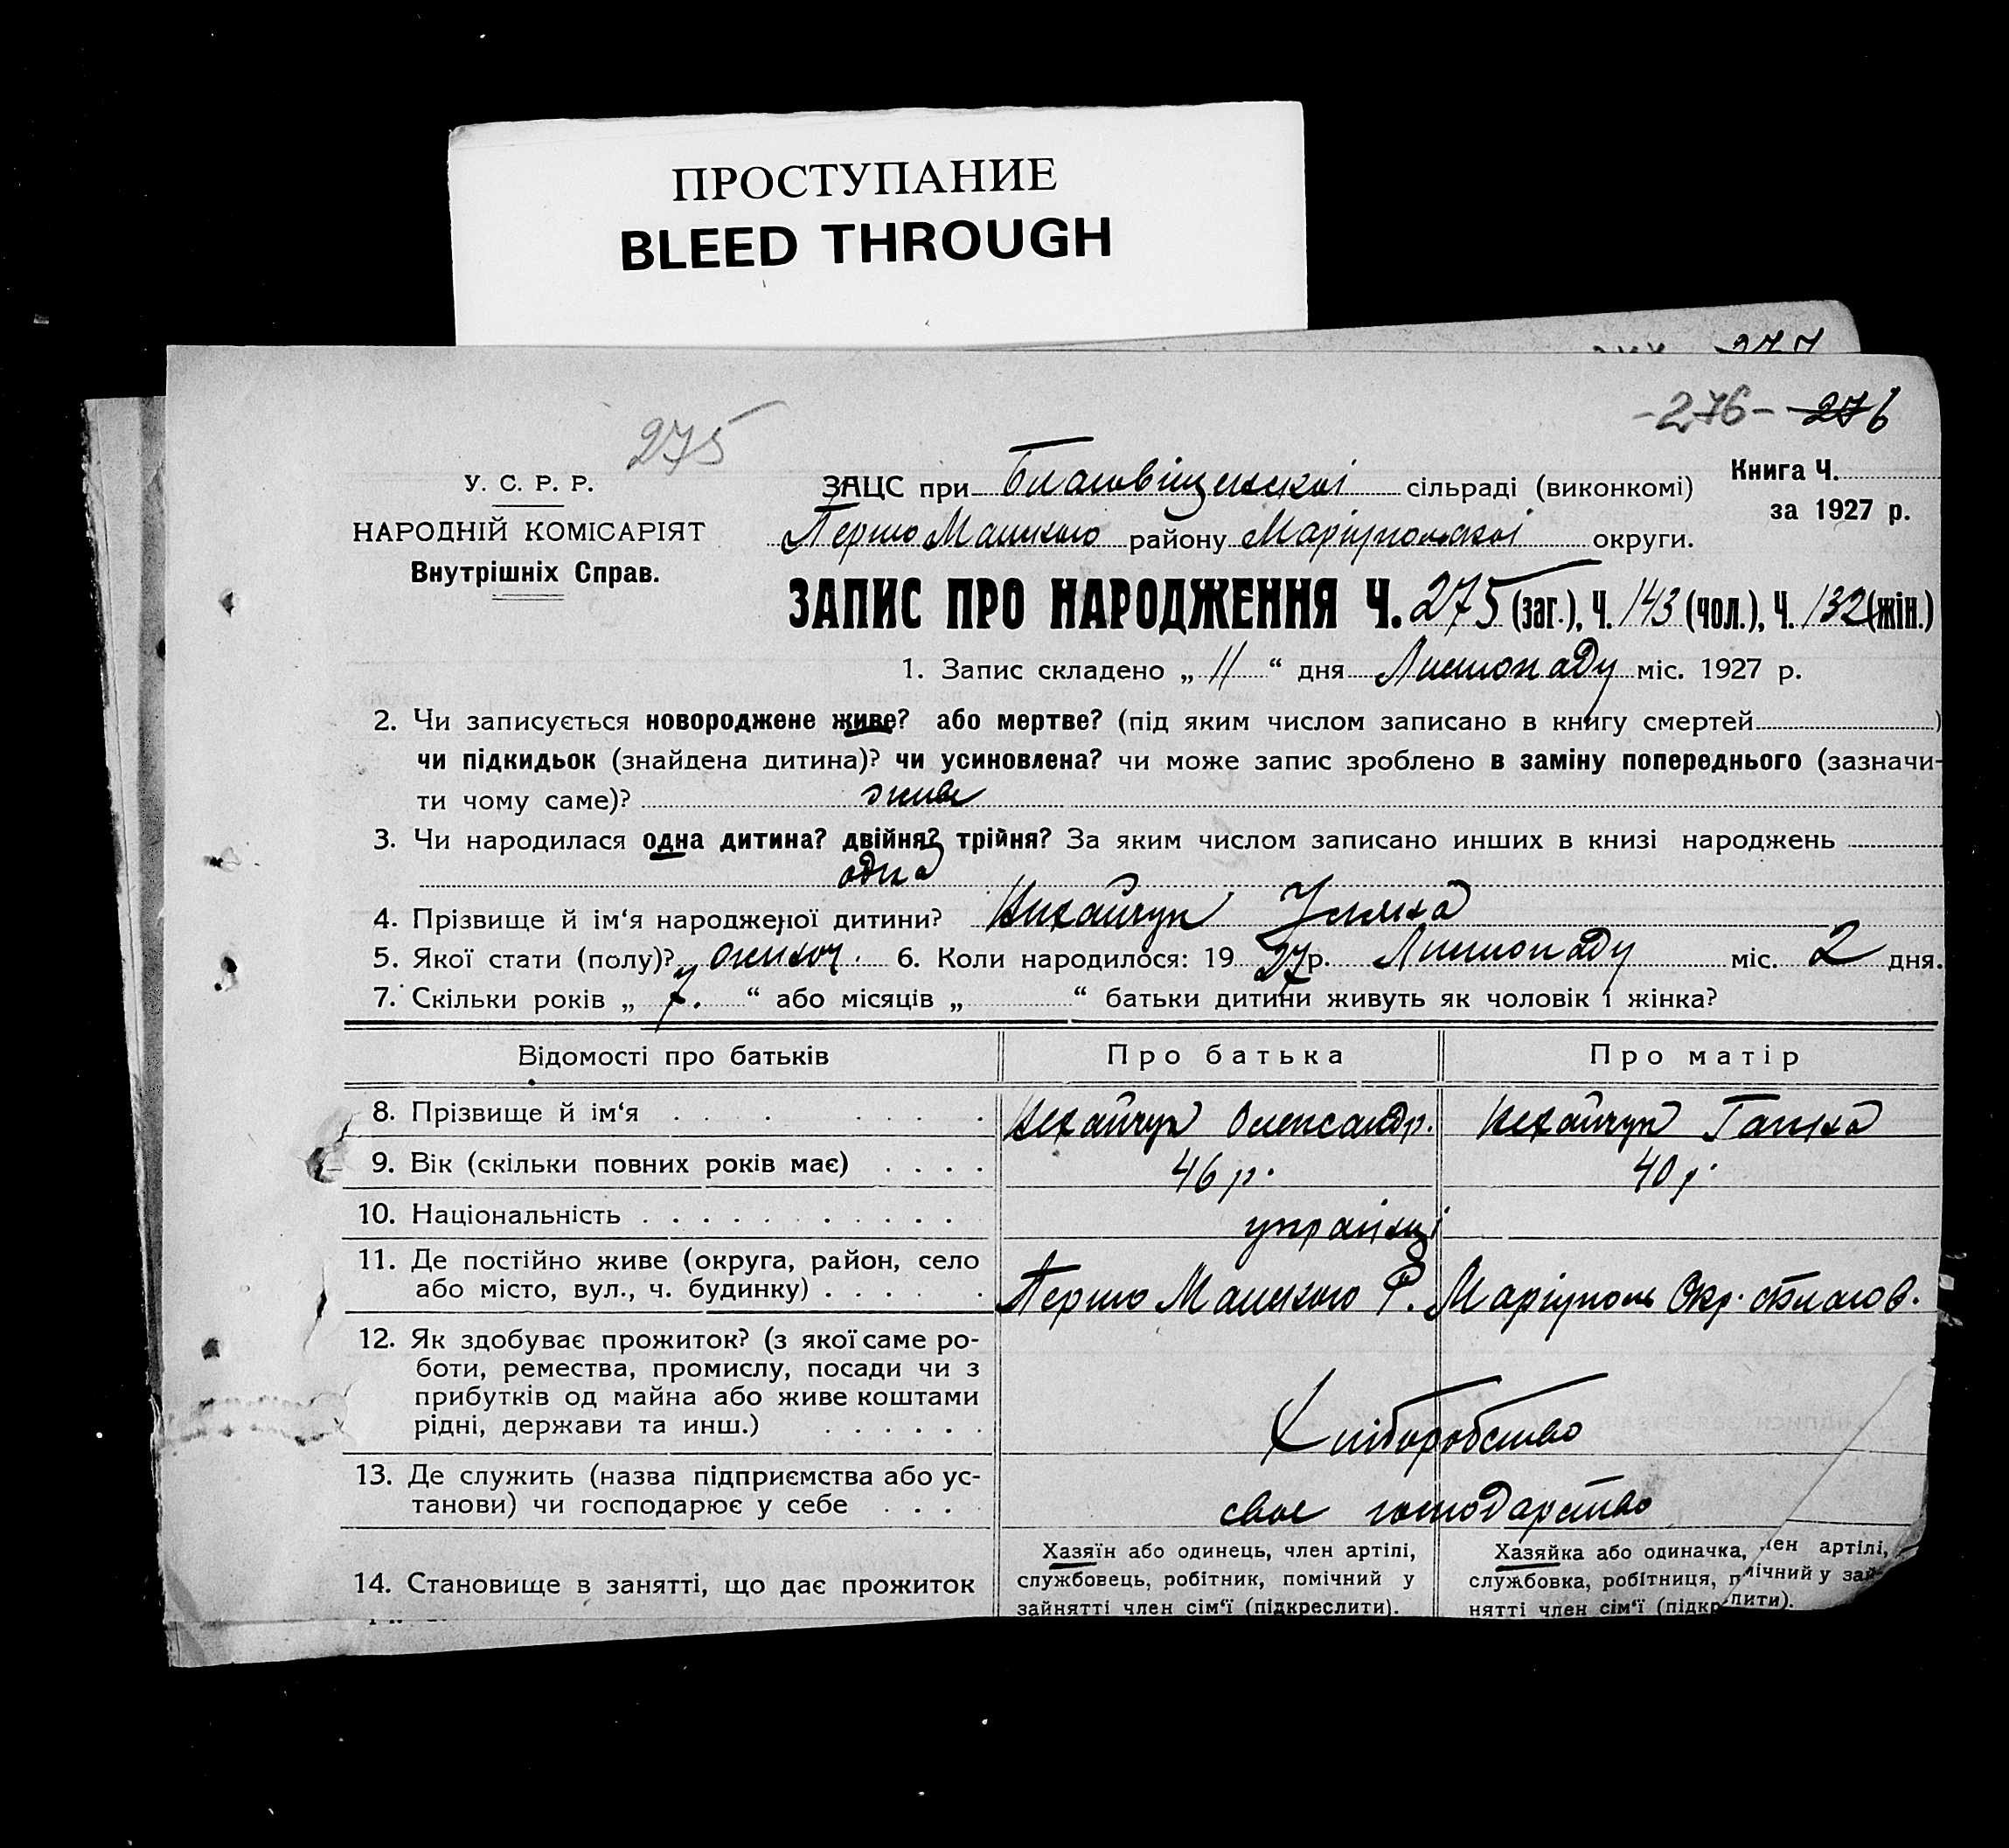 ПРОСТУПАНИЕ
BLEED THROUGH
277
-276- 276
275
У. С. Р. Р.
НАРОДНІЙ КОМІСАРІЯТ
Внутрішніх Справ.
ЗАЦС при Благовіщенскоі сільраді (виконкомі)
Книга Ч.
за 1927 р.
Першо Маиського району Маріупольскоі округи.
ЗАПИС ПРО НАРОДЖЕННЯ Ч. 275 (заг.), Ч. 143 (чол.), Ч. 132 (жін.)
1. Запис складено „ 11 “ дня Листопаду міс. 1927 р.
2. Чи записується новороджене живе? або мертве? (під яким числом записано в книгу смертей )
чи підкидьок (знайдена дитина)? чи усиновлена? чи може запис зроблено в заміну попереднього (зазначи-
ти чому саме)? живе
3. Чи народилася одна дитина? двійня? трійня? За яким числом записано инших в книзі народжень
одна
4. Прізвище й ім‘я народженої дитини? Нихайчук Уляна
5. Якої стати (полу)? жиноч. 6. Коли народилося: 19 27 р. Листопаду міс. 2 дня.
7. Скільки років „ 7. “ або місяців „ “ батьки дитини живуть як чоловік і жінка?
Відомості про батьків Про батька Про матір
8. Прізвище й ім‘я . . . . . . . Нехайчук Олександр. Нехайчук Ганна
9. Вік (скільки повних років має) . . . . 46 р. 40 р.
10. Національність . . . . . . . . . . українці
11. Де постійно живе (округа, район, село
або місто, вул., ч. будинку) . . . . . Першо Маиського Р. Маріуполь Окр. Благов.
12. Як здобуває прожиток? (з якої саме ро-
боти, ремества, промислу, посади чи з
прибутків од майна або живе коштами
рідні, держави та инш.) . . . . . . Хліборобство
13. Де служить (назва підприємства або ус-
танови) чи господарює у себе . . . свое господарство
14. Становище в занятті, що дає прожиток
Хазяїн або одинець, член артілі,
службовець, робітник, помічний у
зайнятті член сім‘ї (підкреслити).
Хазяйка або одиначка, член артілі,
службовка, робітниця, помічний у зай-
нятті член сім‘ї (підкреслити).